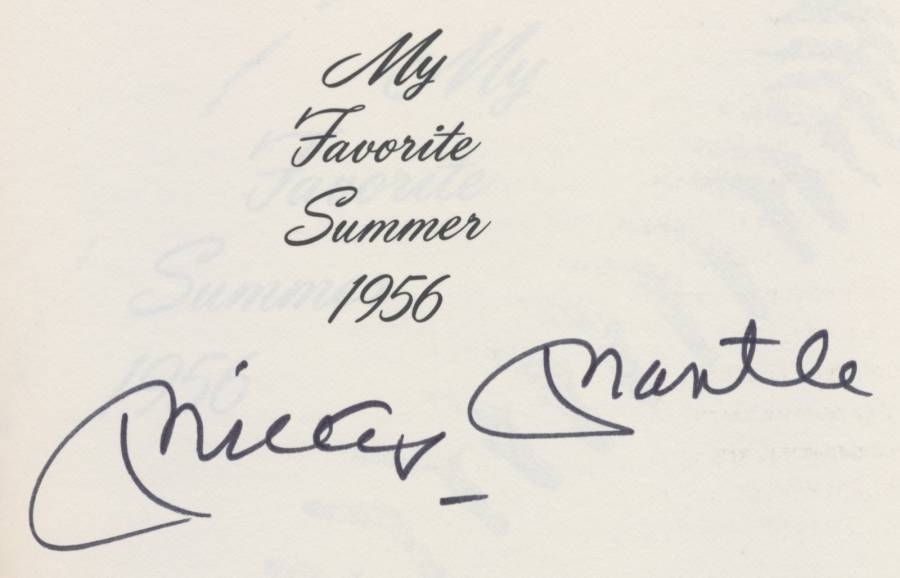 My
Favorite
Summer
1956
Mickey Mantle